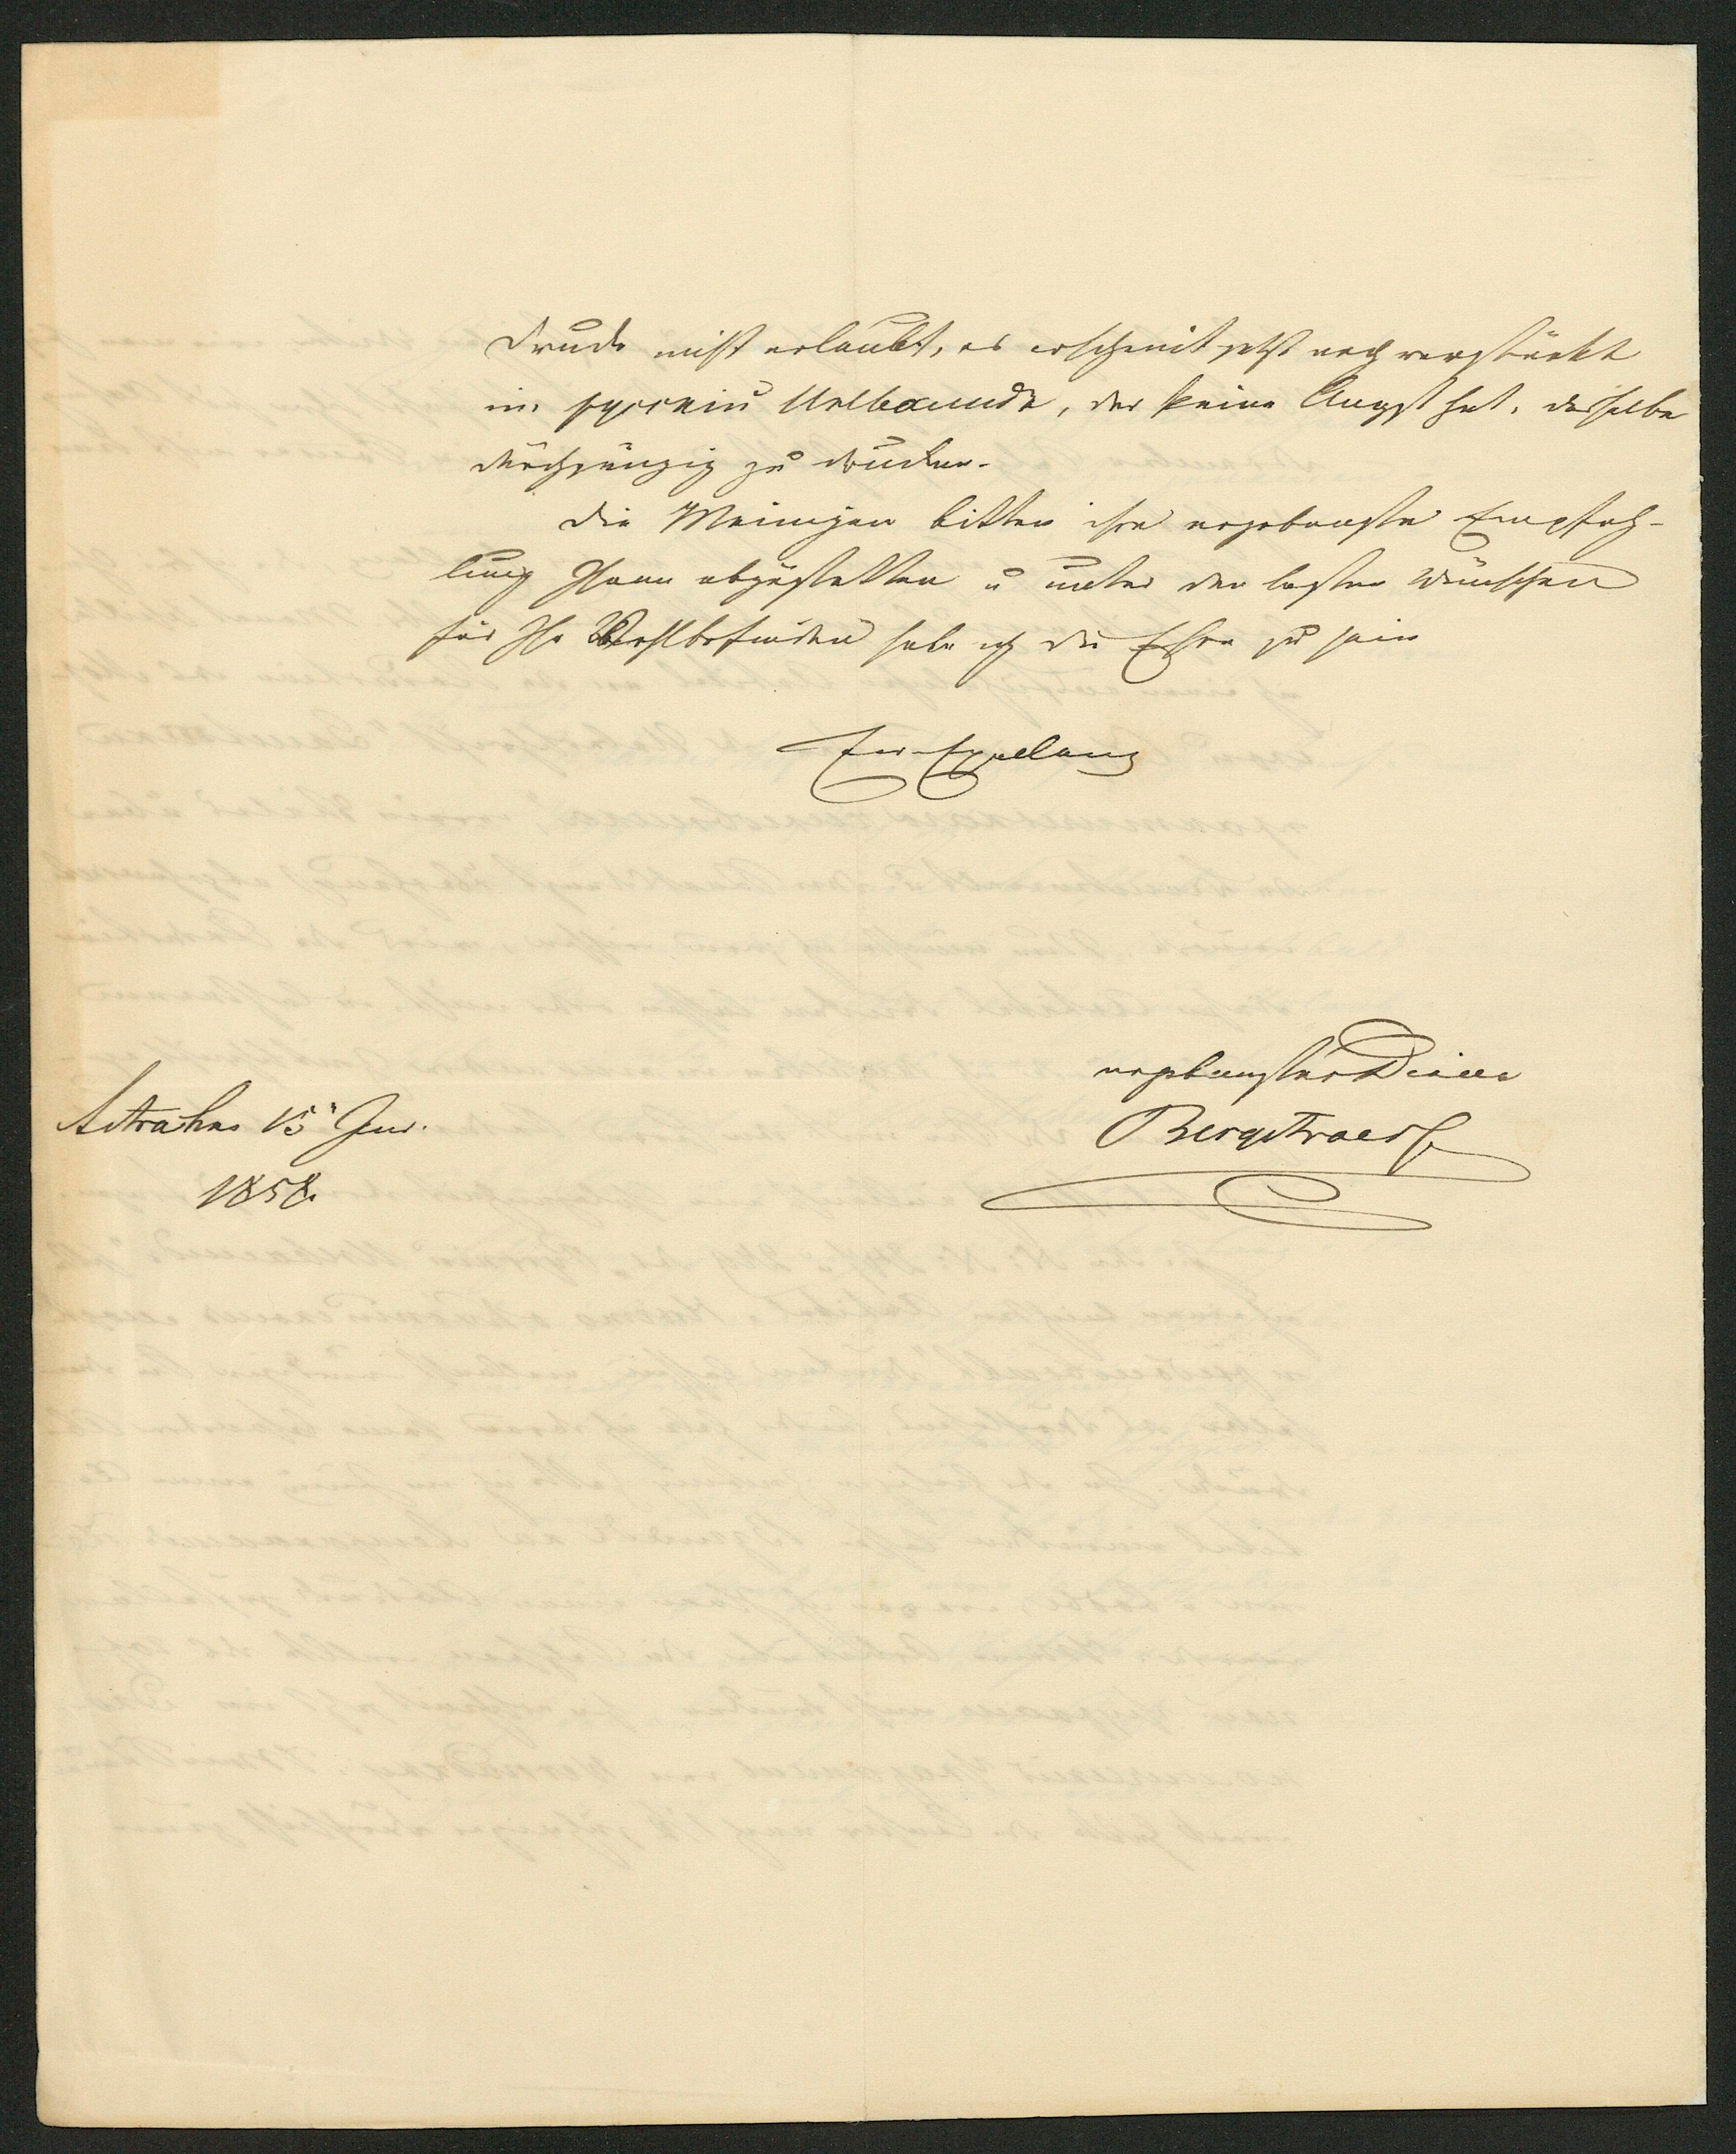 Drucke nicht erlaubt, es erscheint jetzt noch verstärkt
im русскiй Инвалидъ, der keine Angst hat, dasselbe
durchgängig zu drucken.
Die Meinigen bitten ihre ergebenste Empfeh-
lung Ihnen abzustatten u unter den besten Wünschen
für Ihr Wohlbefinden habe ich die Ehre zu sein
Ew. Excellenz
ergebenster Diener
Bergstraesse
Astrahan 15 Jan.
1858.